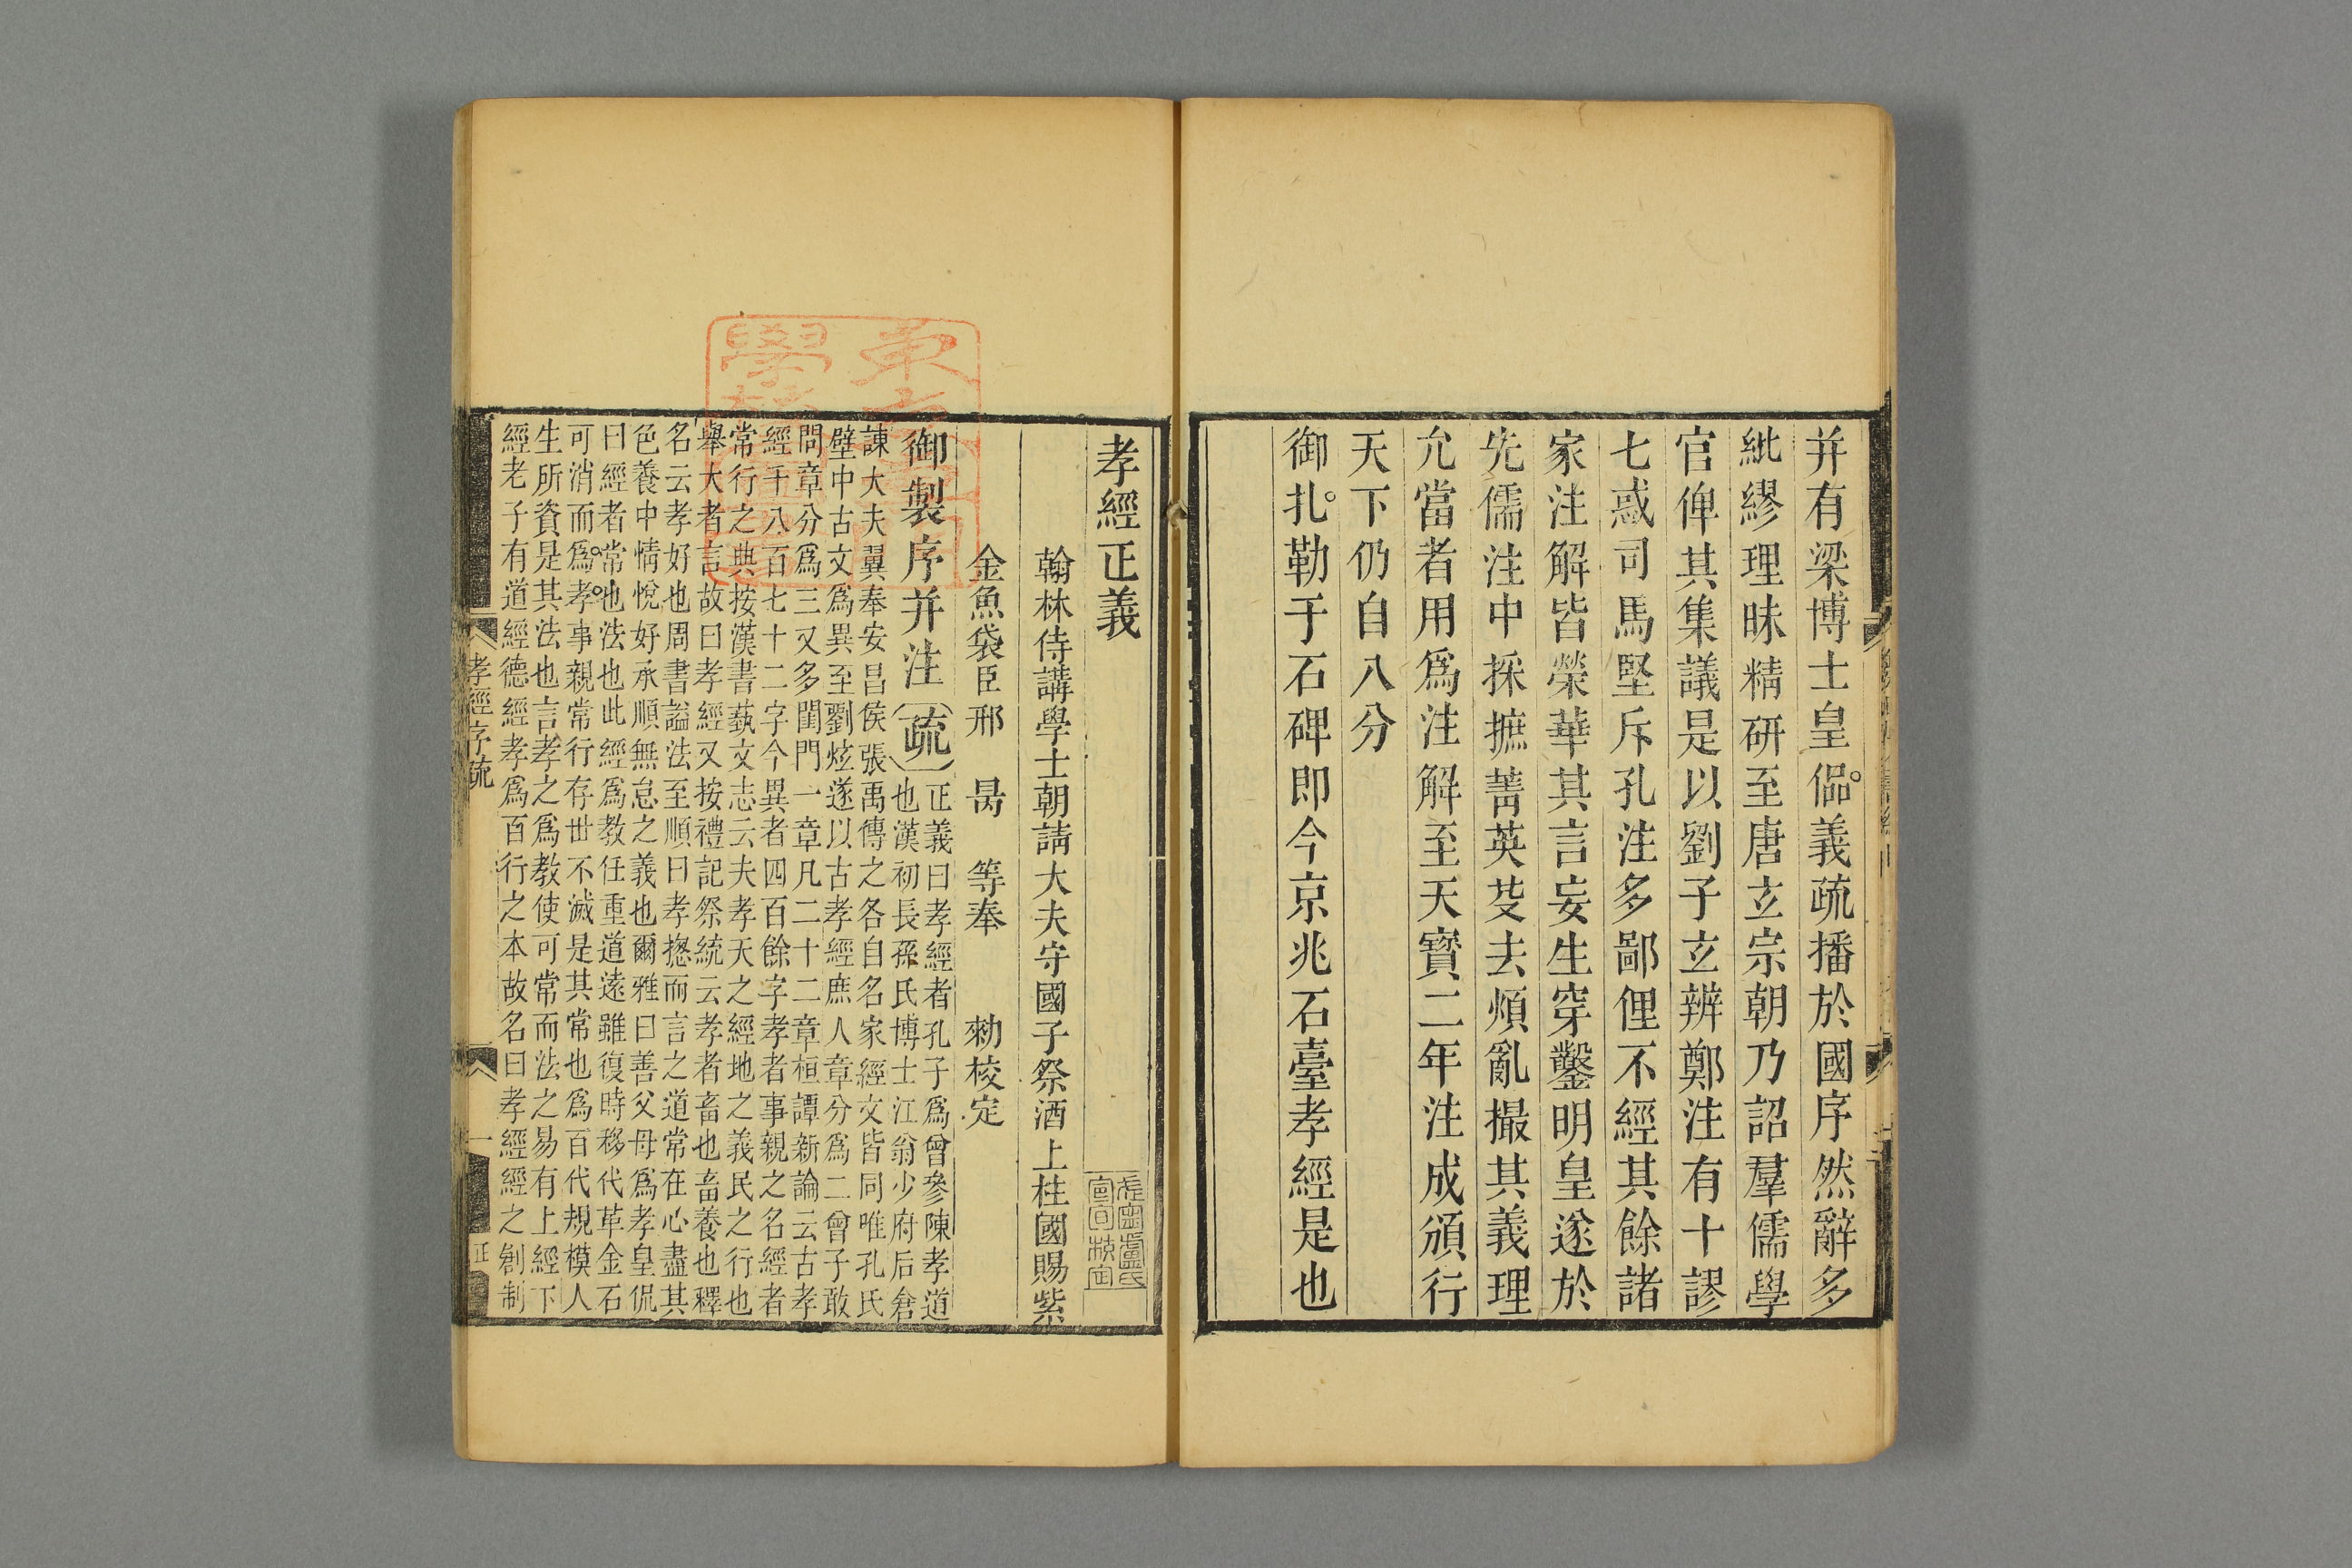 并有梁博士皇侃義疏播於國序然辭多
紕繆理昧精研至唐玄宗朝乃詔羣儒學
官俾其集議是以劉子玄辨鄭注有十謬
七惑司馬堅斥孔注多鄙俚不經其餘諸
家注解皆榮華其言妄生穿鑿明皇遂於
先儒注中採摭菁英芟去煩亂撮其義理
允當者用爲注解至天寶二年注成頒行
天下仍自八分
御扎勒于石碑即今京兆石臺孝經是也
孝經正義
翰林侍講學士朝請大夫守國子祭酒上柱國賜紫
金魚袋臣邢昺等奉勑校定
御製序并注疏
正義曰孝經者孔子爲曾參陳孝道
也漢初長孫氏博士江翁少府后倉
諫大夫翼奉安昌侯張禹傳之各自名家經文皆同唯孔氏
壁中古文爲異至劉炫遂以古孝經庶人章分爲二曾子敢
問章分爲三又多閨門一章凡二十二章桓譚新論云古孝
經千八百七十二字今異者四百餘字孝者事親之名經者
常行之典按漢書藝文志云夫孝天之經地之義民之行也
舉大者言故曰孝經又按禮記祭統云孝者畜也畜養也釋
名云孝好也周書謚法至順曰孝揔而言之道常在心盡其
色養中情悅好承順無怠之義也爾雅曰善父母爲孝皇侃
曰經者常也法也此經爲教任重道遠雖復時移代革金石
可消而爲孝事親常行存世不滅是其常也爲百代規模人
生所資是其法也言孝之爲教使可常而法之易有上經下
經老子有道經德經孝爲百行之本故名曰孝經經之創制
孝經序疏
一